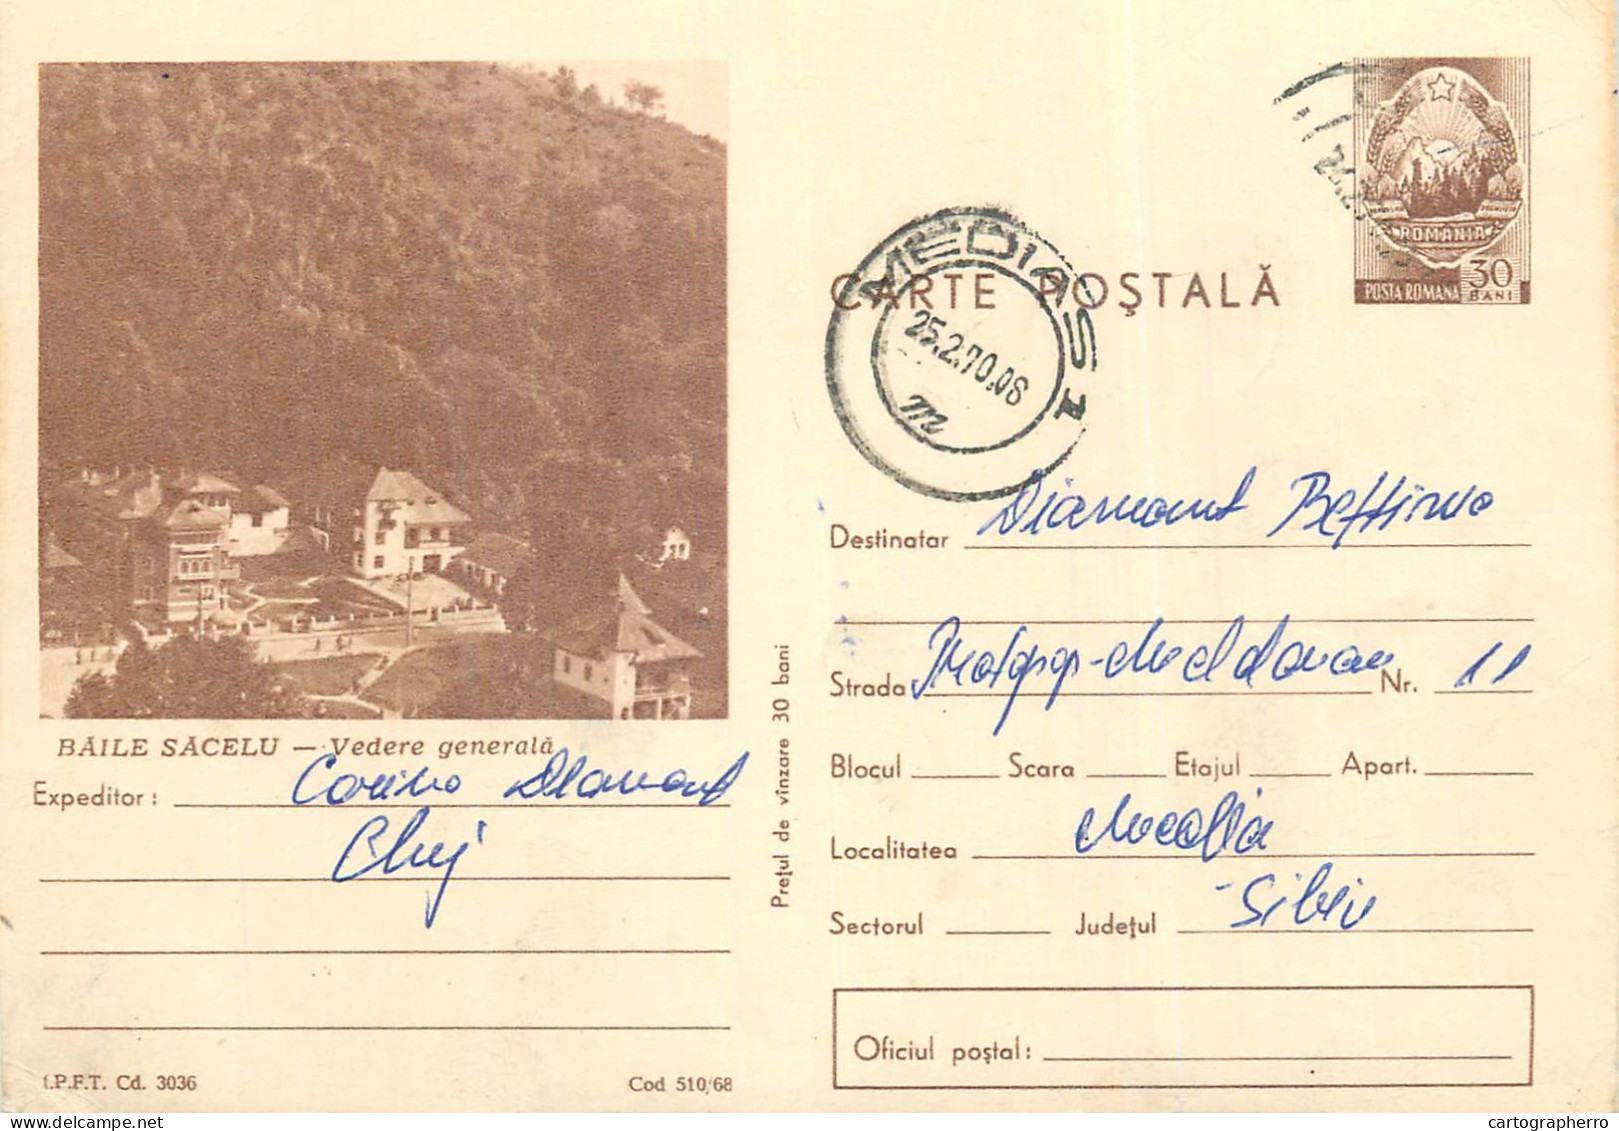 ROMANIA
POSTA ROMANA 30 BANI
CARTE POȘTALĂ
MEDIAS 1
25.2.70.08
m
BĂILE SĂCELU — Vedere generală
Expeditor: Corina Diamant
Cluj
I.P.F.T. Cd. 3036
Cod 510/68
Prețul de vînzare 30 bani
Destinatar Diamant Bettina
Strada Nr. 11
Blocul Scara Etajul Apart.
Localitatea
Sectorul Județul Sibiu
Oficiul poștal:
cartographerro